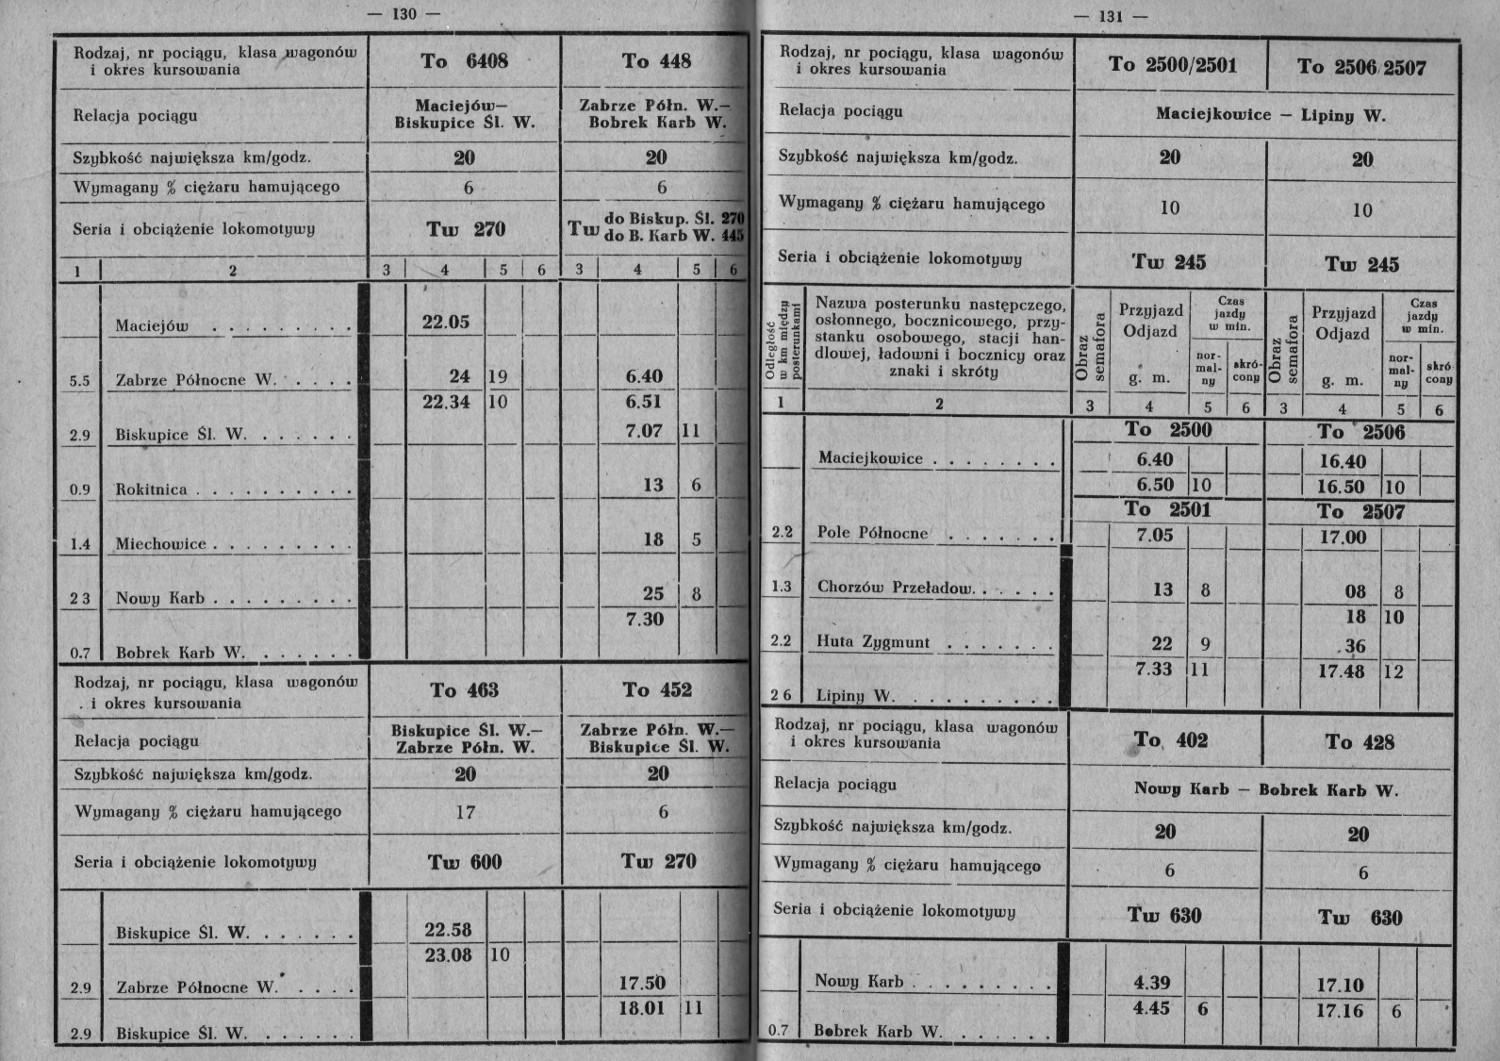 — 130 —
Rodzaj, nr pociągu, klasa wagonów
i okres kursowania
To 6408
To 448
Relacja pociągu
Maciejów—
Biskupice Śl. W.
Zabrze Półn. W.—
Bobrek Karb W.
Szybkość największa km/godz.
20
20
Wymagany % ciężaru hamującego
6
6
Seria i obciążenie lokomotywy
Tw 270
Tw do Biskup. Śl. 270
do B. Karb W. 445
1 2 3 4 5 6 3 4 5 6
Maciejów . . . . . . . . . 22.05
5.5 Zabrze Północne W. . . . . 24 19 6.40
22.34 10 6.51
2.9 Biskupice Śl. W. . . . . . . 7.07 11
0.9 Rokitnica . . . . . . . . . . 13 6
1.4 Miechowice . . . . . . . . . 18 5
2 3 Nowy Karb . . . . . . . . . 25 8
7.30
0.7 Bobrek Karb W. . . . . . .
Rodzaj, nr pociągu, klasa wagonów
i okres kursowania
To 463
To 452
Relacja pociągu
Biskupice Śl. W.—
Zabrze Półn. W.
Zabrze Półn. W.—
Biskupice Śl. W.
Szybkość największa km/godz.
20
20
Wymagany % ciężaru hamującego
17
6
Seria i obciążenie lokomotywy
Tw 600
Tw 270
Biskupice Śl. W. . . . . . . 22.58
23.08 10
2.9 Zabrze Północne W. . . . . 17.50
18.01 11
2.9 Biskupice Śl. W. . . . . . .
— 131 —
Rodzaj, nr pociągu, klasa wagonów
i okres kursowania
To 2500/2501
To 2506 2507
Relacja pociągu
Maciejkowice — Lipiny W.
Szybkość największa km/godz.
20
20
Wymagany % ciężaru hamującego
10
10
Seria i obciążenie lokomotywy
Tw 245
Tw 245
Odległość
w km między
posterunkami
Nazwa posterunku następczego,
osłonnego, bocznicowego, przy-
stanku osobowego, stacji han-
dlowej, ładowni i bocznicy oraz
znaki i skróty
Obraz
semafora
Przyjazd
Odjazd
g. m.
Czas
jazdy
w min.
nor-
mal-
ny
skró-
cony
Obraz
semafora
Przyjazd
Odjazd
g. m.
Czas
jazdy
w min.
nor-
mal-
ny
skró
cony
1 2 3 4 5 6 3 4 5 6
To 2500 To 2506
Maciejkowice . . . . . . . . 6.40 16.40
6.50 10 16.50 10
To 2501 To 2507
2.2 Pole Północne . . . . . . . 7.05 17.00
1.3 Chorzów Przeładow. . . . . . 13 8 08 8
18 10
2.2 Huta Zygmunt . . . . . . . 22 9 .36
7.33 11 17.48 12
2 6 Lipiny W. . . . . . . . . . .
Rodzaj, nr pociągu, klasa wagonów
i okres kursowania
To 402
To 428
Relacja pociągu
Nowy Karb — Bobrek Karb W.
Szybkość największa km/godz.
20
20
Wymagany % ciężaru hamującego
6
6
Seria i obciążenie lokomotywy
Tw 630
Tw 630
Nowy Karb . . . . . . . . . 4.39 17.10
4.45 6 17.16 6
0.7 Bobrek Karb W. . . . . . .